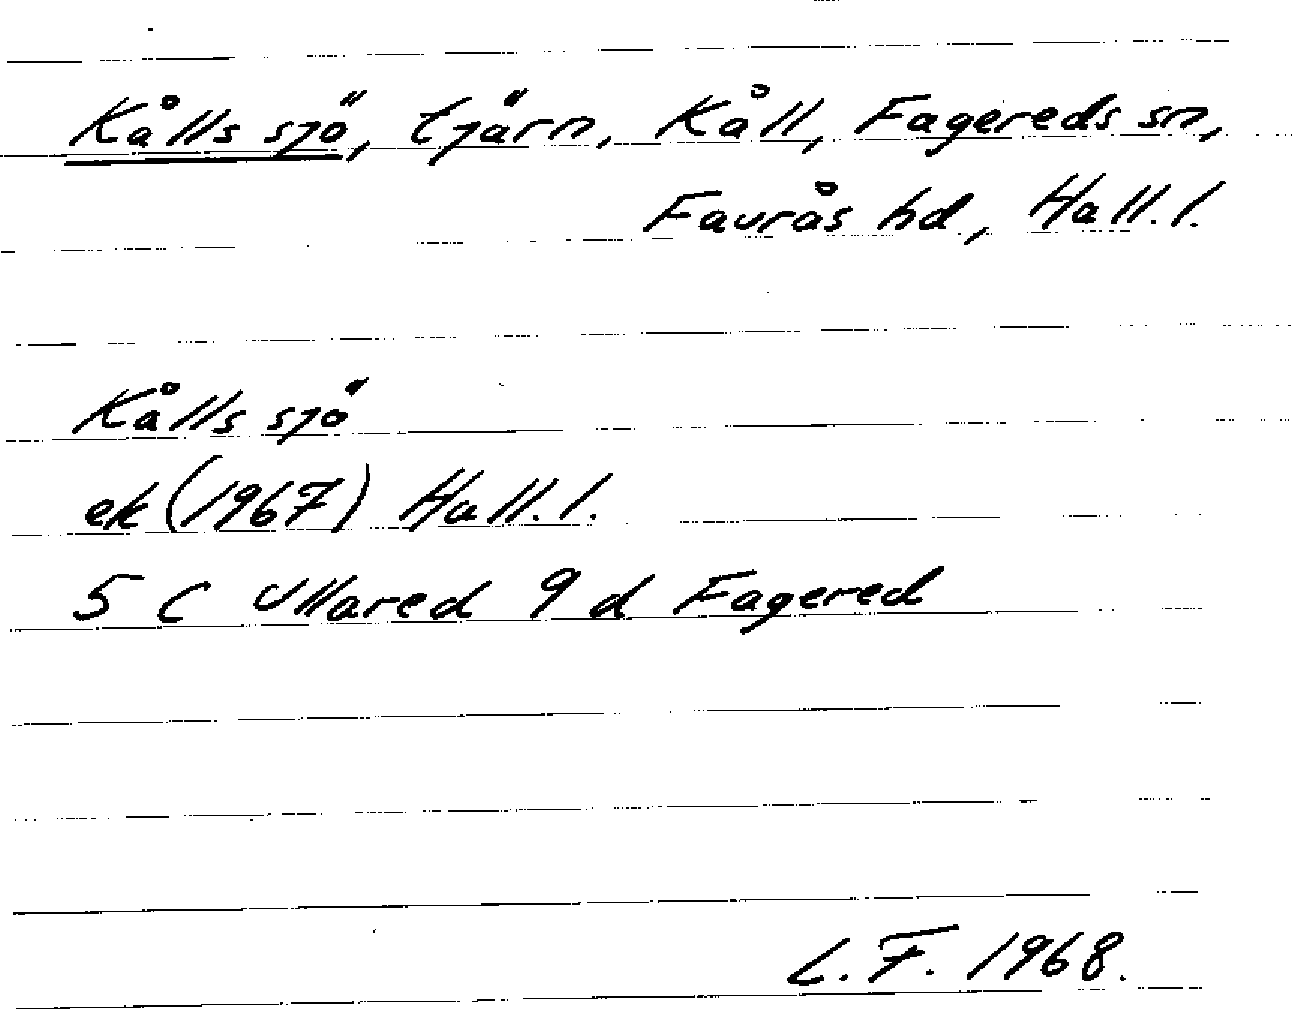 Kålls sjö, tjärn, Kåll, Fagereds sn,
Faurås hd, Hall. l.
Kålls sjö
ek (1967) Hall. l.
5 C Ullared 9 d Fagered
L. F. 1968.